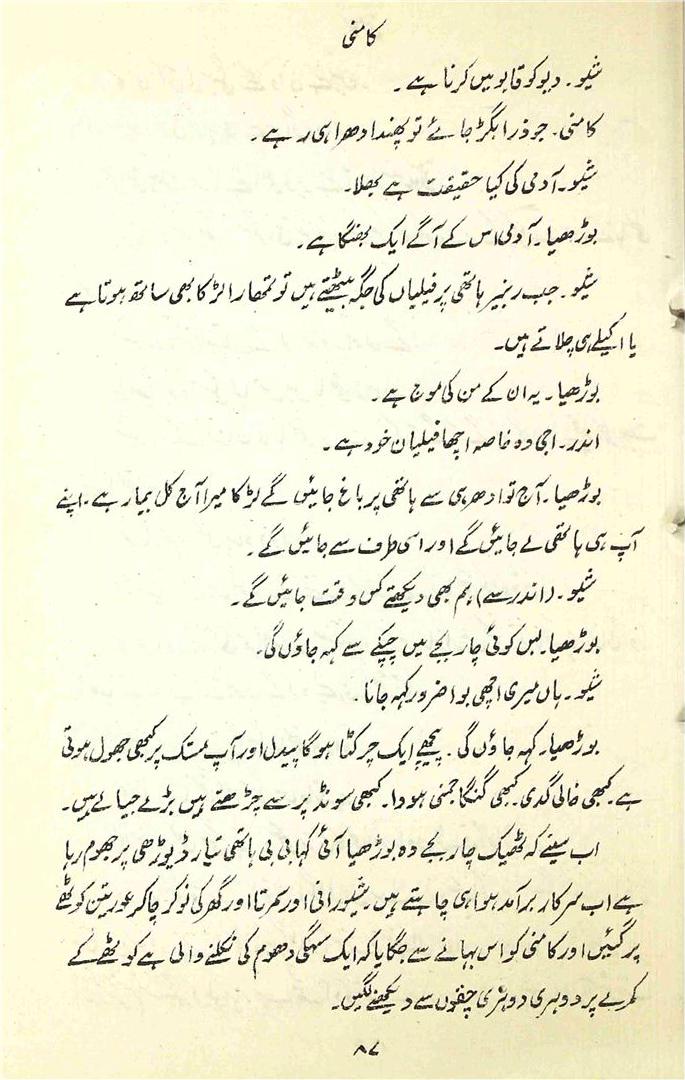 کامنی
شیو۔ دیو کو قابو میں کرنا ہے۔
کامنی۔ جو ذرا بگڑ جائے تو پھندا دھرا ہی رہے۔
شیو۔ آدمی کی کیا حقیقت ہے بھلا۔
بوڑھیا۔ آدمی اس کے آگے ایک بھنگا ہے۔
شیو۔ جب رنبیر ہاتھی پر فیلبان کی جگہ بیٹھتے ہیں تو تمھارا لڑکا بھی ساتھ ہوتا ہے
یا اکیلے ہی چلاتے ہیں۔
بوڑھیا۔ یہ ان کے من کی موج ہے۔
اندر۔ اجی وہ خاصہ اچھا فیلبان خود ہے۔
بوڑھیا۔ آج تو ادھر ہی سے ہاتھی پر باغ جائیں گے لڑکا میرا آج کل بیمار ہے۔ اپنے
آپ ہی ہاتھی لے جائیں گے اور اسی طرف سے جائیں گے۔
شیو۔ (اندر سے) ہم بھی دیکھتے کس وقت جائیں گے۔
بوڑھیا۔ بس کوئی چار بجے میں چپکے سے کہہ جاؤں گی۔
شیو۔ ہاں میری اچھی بوا ضرور کہہ جانا۔
بوڑھیا۔ کہہ جاؤں گی۔ پیچھے ایک چرکٹا ہوگا پیدل اور آپ مستک پر کبھی جھول ہوتی
ہے۔ کبھی خالی گدی۔ کبھی گنگا جمنی ہودا۔ کبھی سونڈ پر سے چڑھتے ہیں بڑے جیالے ہیں۔
اب سنیے کہ ٹھیک چار بجے وہ بوڑھیا آئی کہا بی بی ہاتھی تیار ڈیوڑھی پر جھوم رہا
ہے اب سرکار برآمد ہوا ہی چاہتے ہیں۔ شیورانی اور سمرتا اور گھر کی نوکر چاکر عورتیں کوٹھے
پر گئیں اور کامنی کو اس بہانے سے جگایا کہ ایک سہگی دھوم کی نکلنے والی ہے کوٹھے کے
کمرے پر دوہری دوہری چقوں سے دیکھنے لگیں۔
۸۷